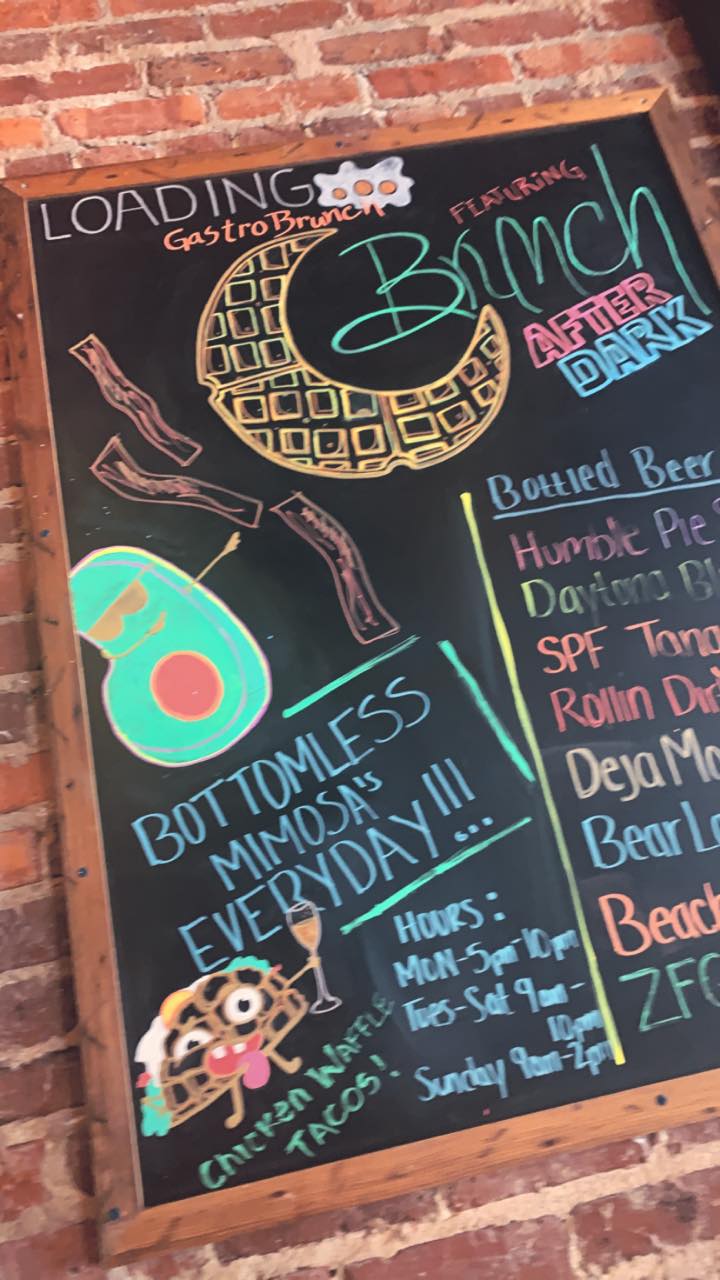 LOADING
GastroBrunch
FEATURING
Brunch
AFTER
DARK
BOTTOMLESS
MIMOSA's
EVERYDAY!!!
HOURS:
MON-5pm-10pm
Tues-Sat 9am-
10pm
Sunday 9am-2pm
Chicken WAFFLE
TACOS!
Bottled Beer
Humble Pie
Daytona
SPF
Rollin
Deja
Bear
Beach